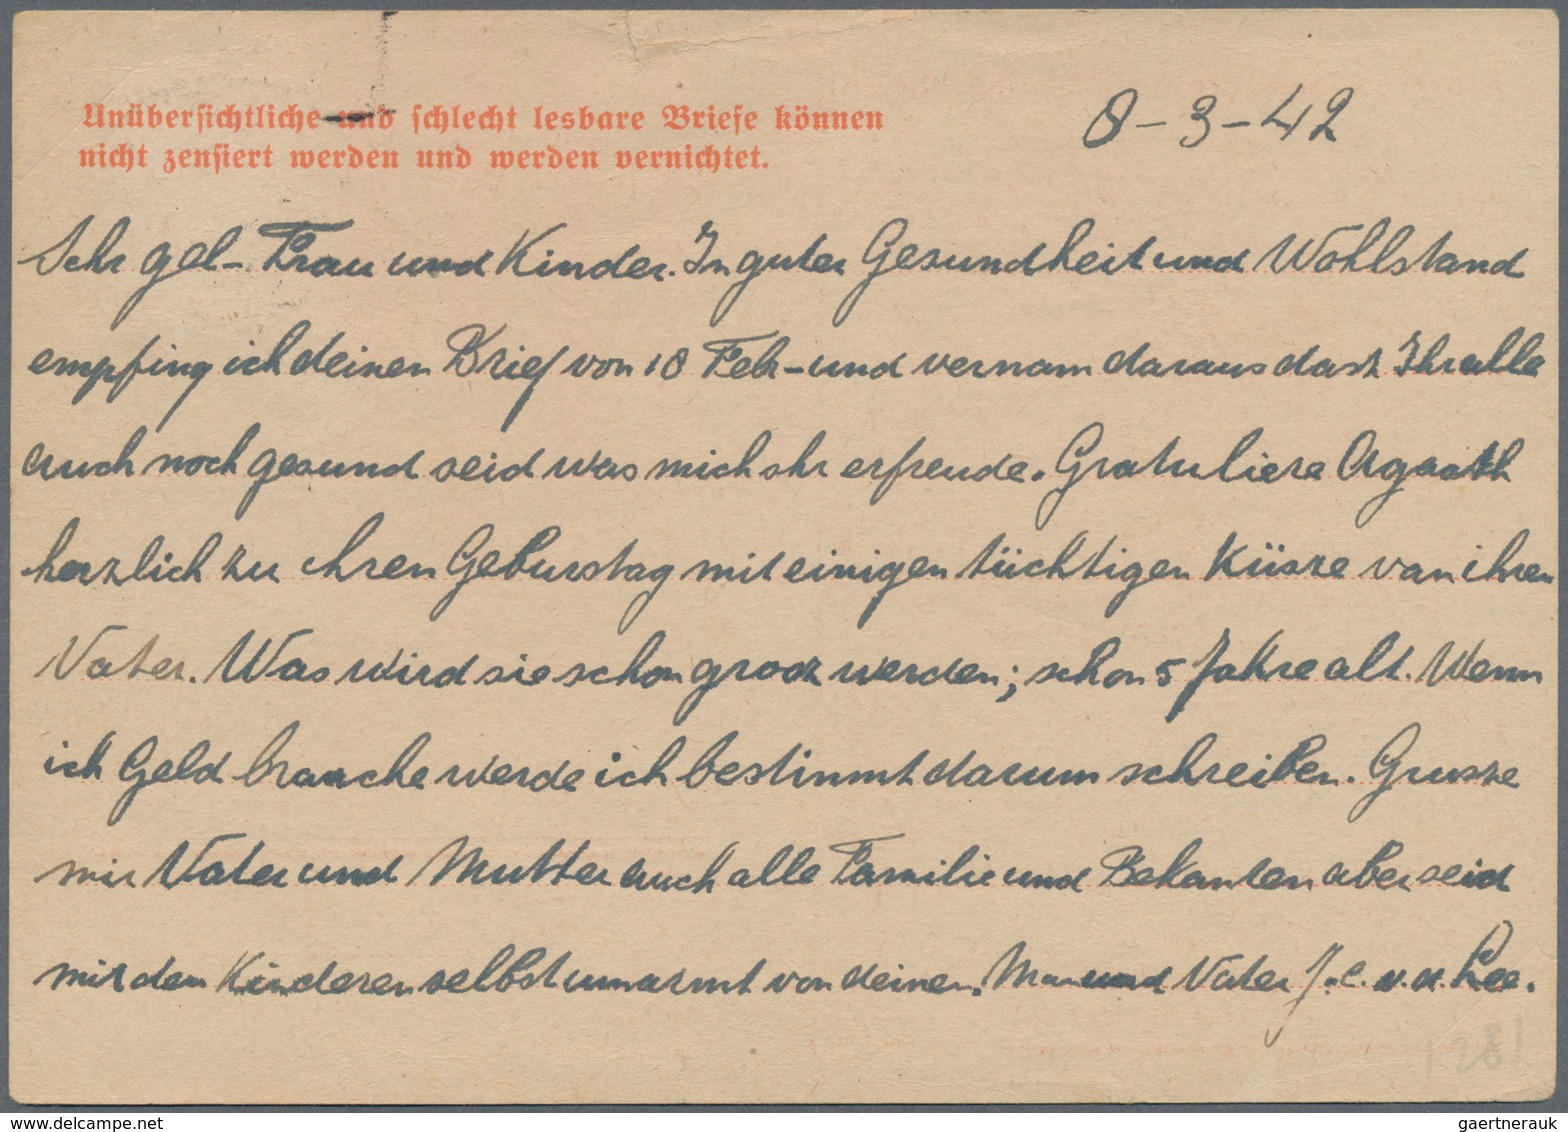 Unübersichtliche und schlecht lesbare Briefe können
nicht zensiert werden und werden vernichtet.
8-3-42
Sehr gel- Frau und Kinder. In guter Gesundheit und Wohlstand
empfing ich deinen Brief von 18 Feb- und vernam daraus dasz Ihr alle
auch noch gesund seid was mich shr erfreude. Gratuliere Agaath
herzlich zu ihren Geburstag mit einigen tüchtigen Küsze van ihren
Vater. Was wird sie schon grosz werden; schon 5 Jahre alt. Wenn
ich Geld brauche werde ich bestimmt darum schreiben. Grusze
mir Vater und Mutter auch alle Familie und Bekanten aber seid
mit den Kinderen selbst umarmt von deinen. Man und Vater J.C. v.d. Lee.
1281
gaertnerauk